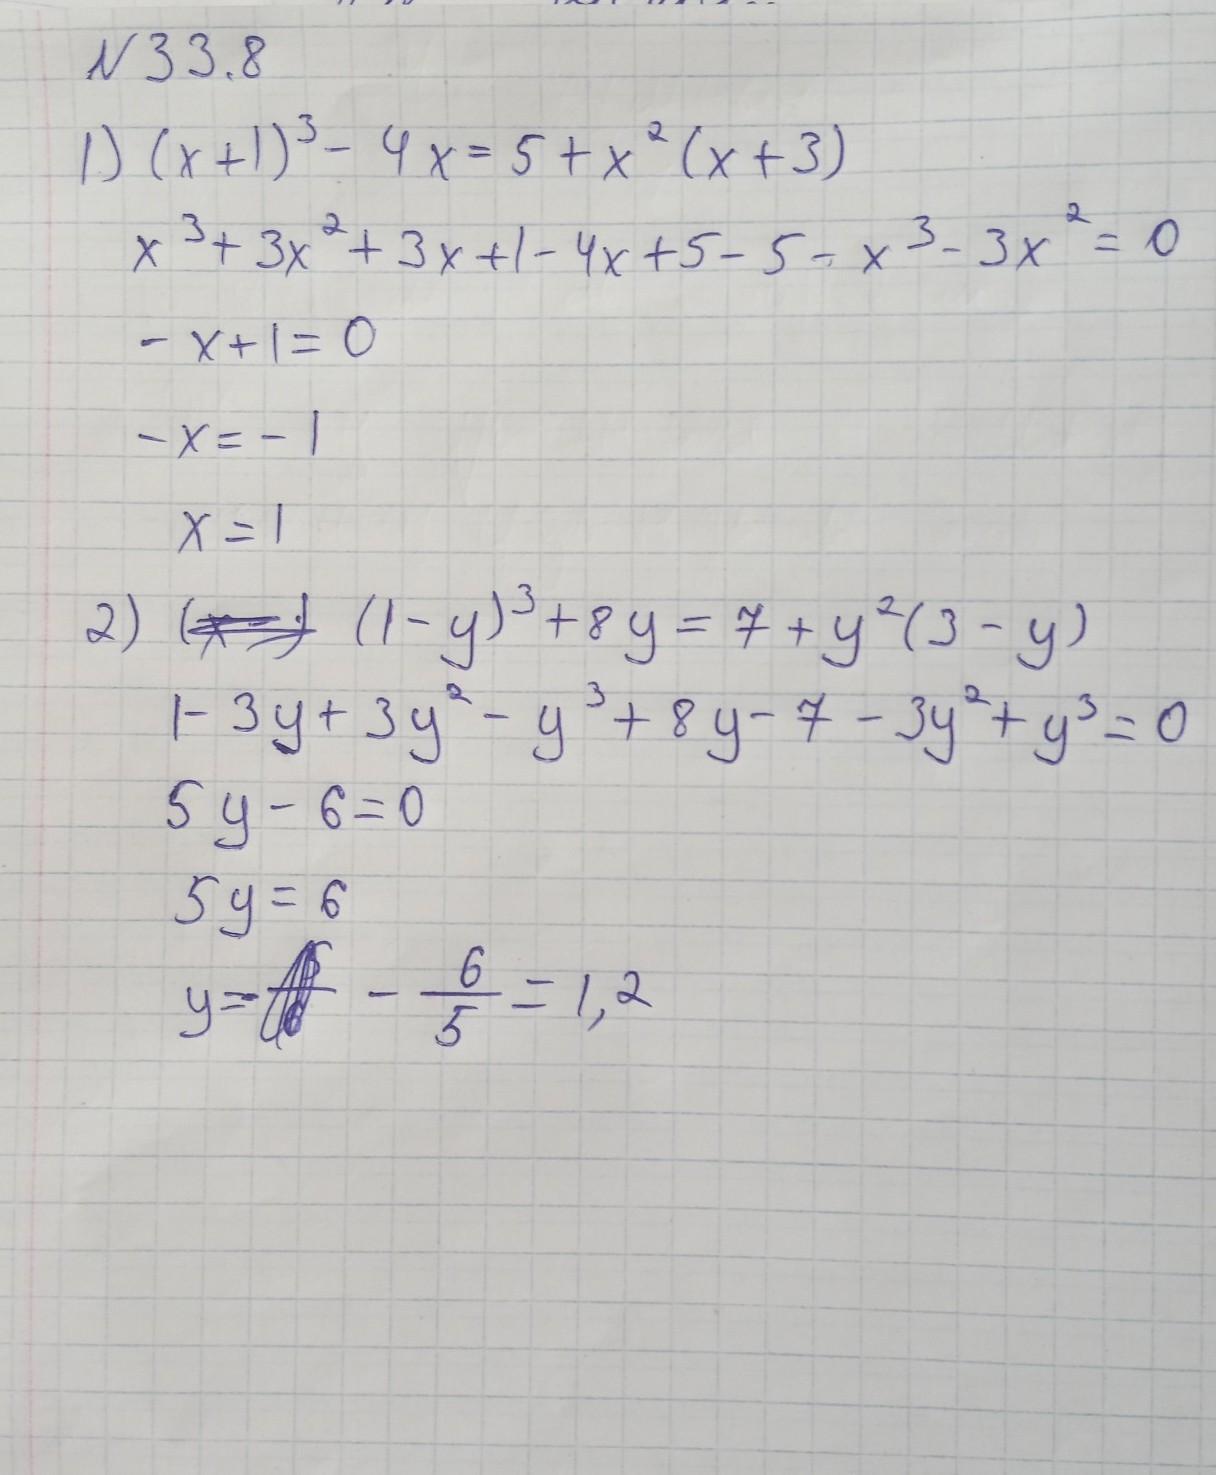 N 33.8
1) (x+1)³ - 4x = 5 + x² (x+3)
x³ + 3x² + 3x + 1 - 4x + 5 - 5 - x³ - 3x² = 0
- x + 1 = 0
- x = - 1
x = 1
2) (1 - y)³ + 8y = 7 + y² (3 - y)
1 - 3y + 3y² - y³ + 8y - 7 - 3y² + y³ = 0
5y - 6 = 0
5y = 6
y = - 6/5 = 1,2